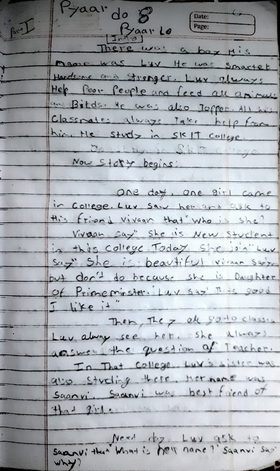 Part I
Pyaar do &
Pyaar Lo
Date:
Page:
[Intro]
There was a boy His
name was Luv He was smarter
Handsome and stronger. Luv always
Help Poor People and feed all animals
and Birds. He was also Topper. All his
Classmates always Take help from
him. He study in SKIT College.
Now Story begins:
One day, one girl came
in College. Luv saw her and ask to
his friend Vivaan that "who is she"
Vivaan say" She is New Student
in this College Today She join" Luv
say" She is beautiful Vivaan
but don't do because she is Daughter
of Primeminister. Luv say" It is good
I like it"
Then, They go to class
Luv alway see her. She always
answer the question of Teacher.
In That College. Luv's sister was
also Studing there. Her name was
Saanvi. Saanvi was best friend of
that girl.
Next day Luv ask to
Saanvi that "What is her name?" Saanvi Say
why?